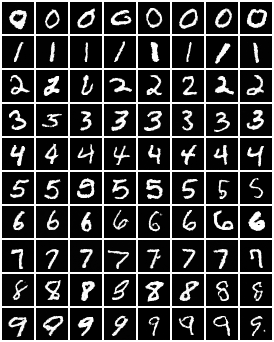 0 0 0 0 0 0 0 0
1 1 1 1 1 1 1 1
2 2 2 2 2 2 2 2
3 3 3 3 3 3 3 3
4 4 4 4 4 4 4 4
5 5 5 5 5 5 5 5
6 6 6 6 6 6 6 6
7 7 7 7 7 7 7 7
8 8 8 8 8 8 8 8
9 9 9 9 9 9 9 9